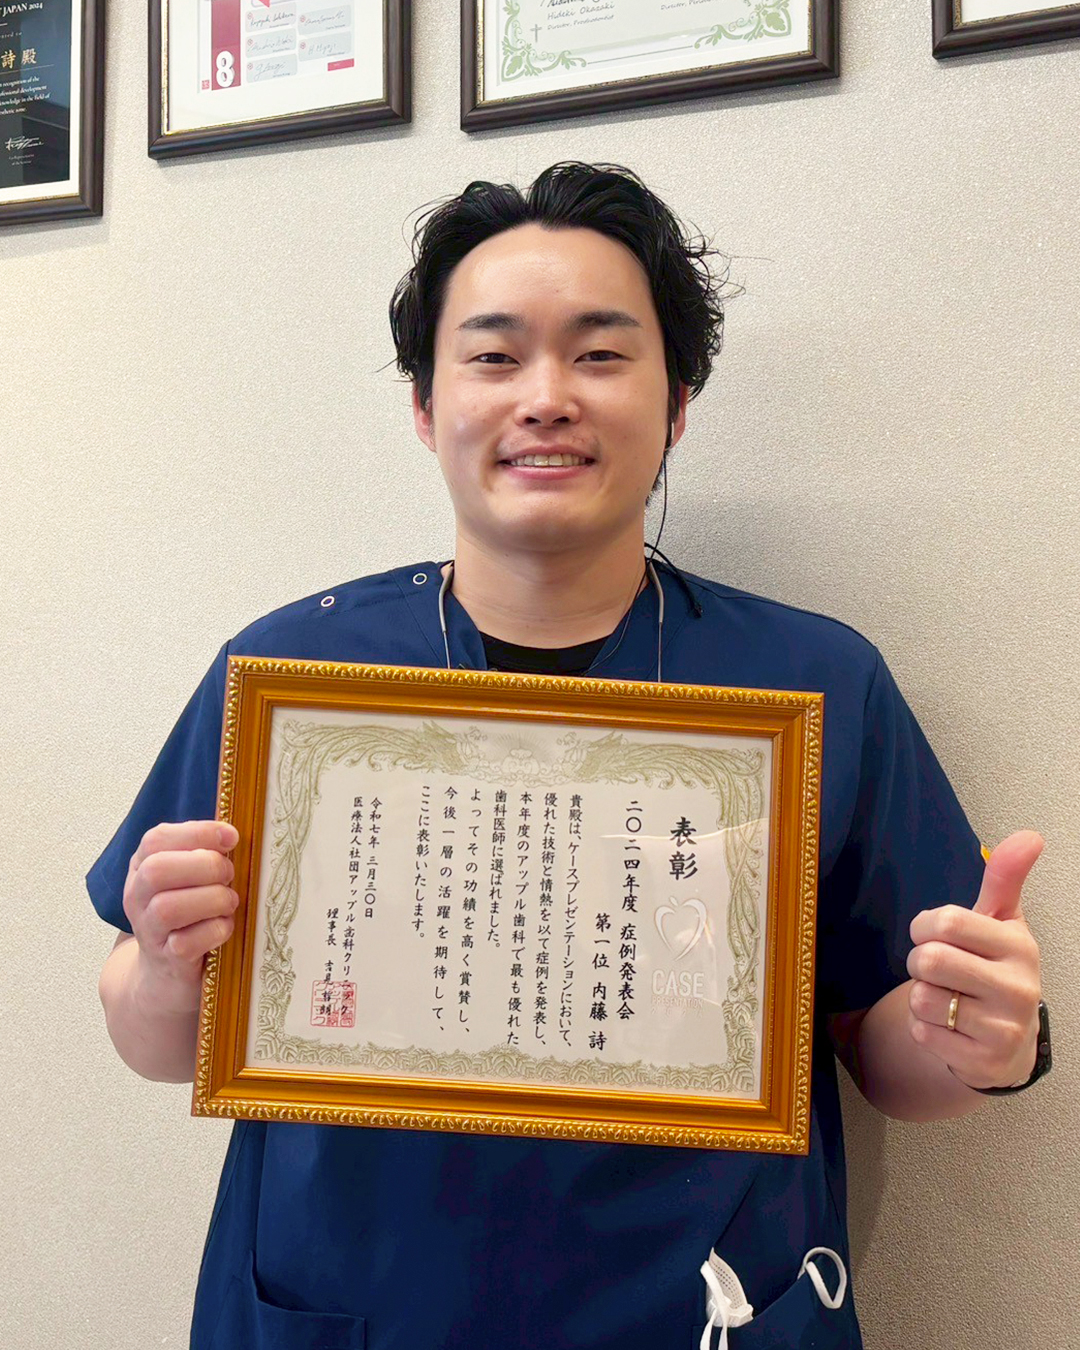 JAPAN 2024
詩 殿
8
Hideki Okazaki
表彰
CASE
PRESENTATION
二〇二四年度 症例発表会
第一位 内藤 詩
貴殿は、ケースプレゼンテーションにおいて、
優れた技術と情熱を以て症例を発表し、
本年度のアップル歯科で最も優れた
歯科医師に選ばれました。
よってその功績を高く賞賛し、
今後一層の活躍を期待して、
ここに表彰いたします。
令和七年 三月三〇日
医療法人社団アップル歯科クリニック
理事長 吉見哲朗